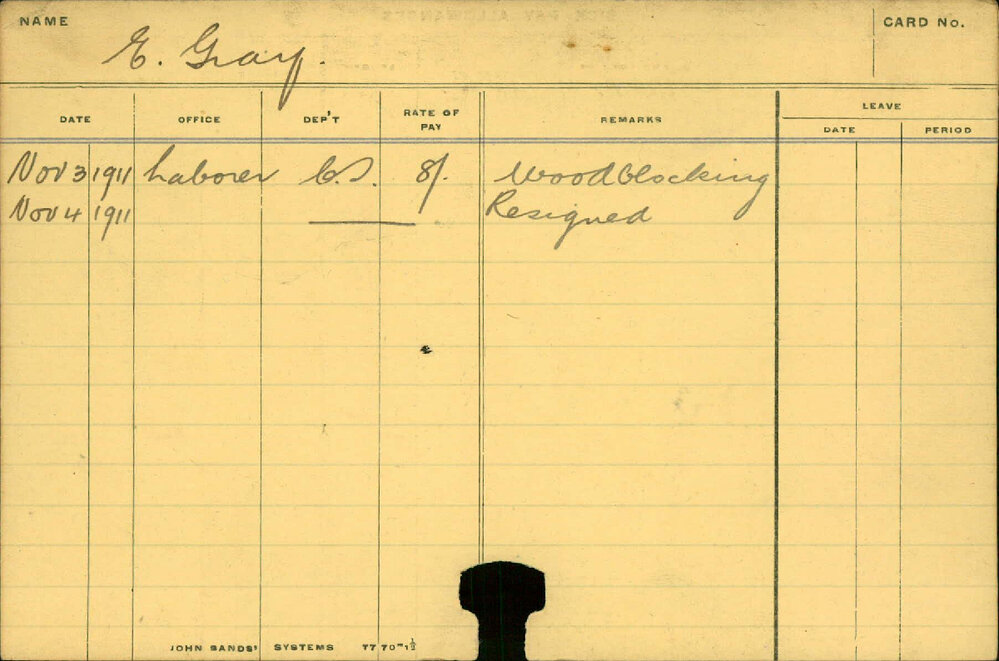 NAME
E. Gray.
CARD No.
DATE OFFICE DEP'T RATE OF PAY REMARKS
LEAVE
DATE PERIOD
Nov 3 1911 Laborer C.S. 8/. Woodblocking
Nov 4 1911 Resigned
JOHN SANDS' SYSTEMS